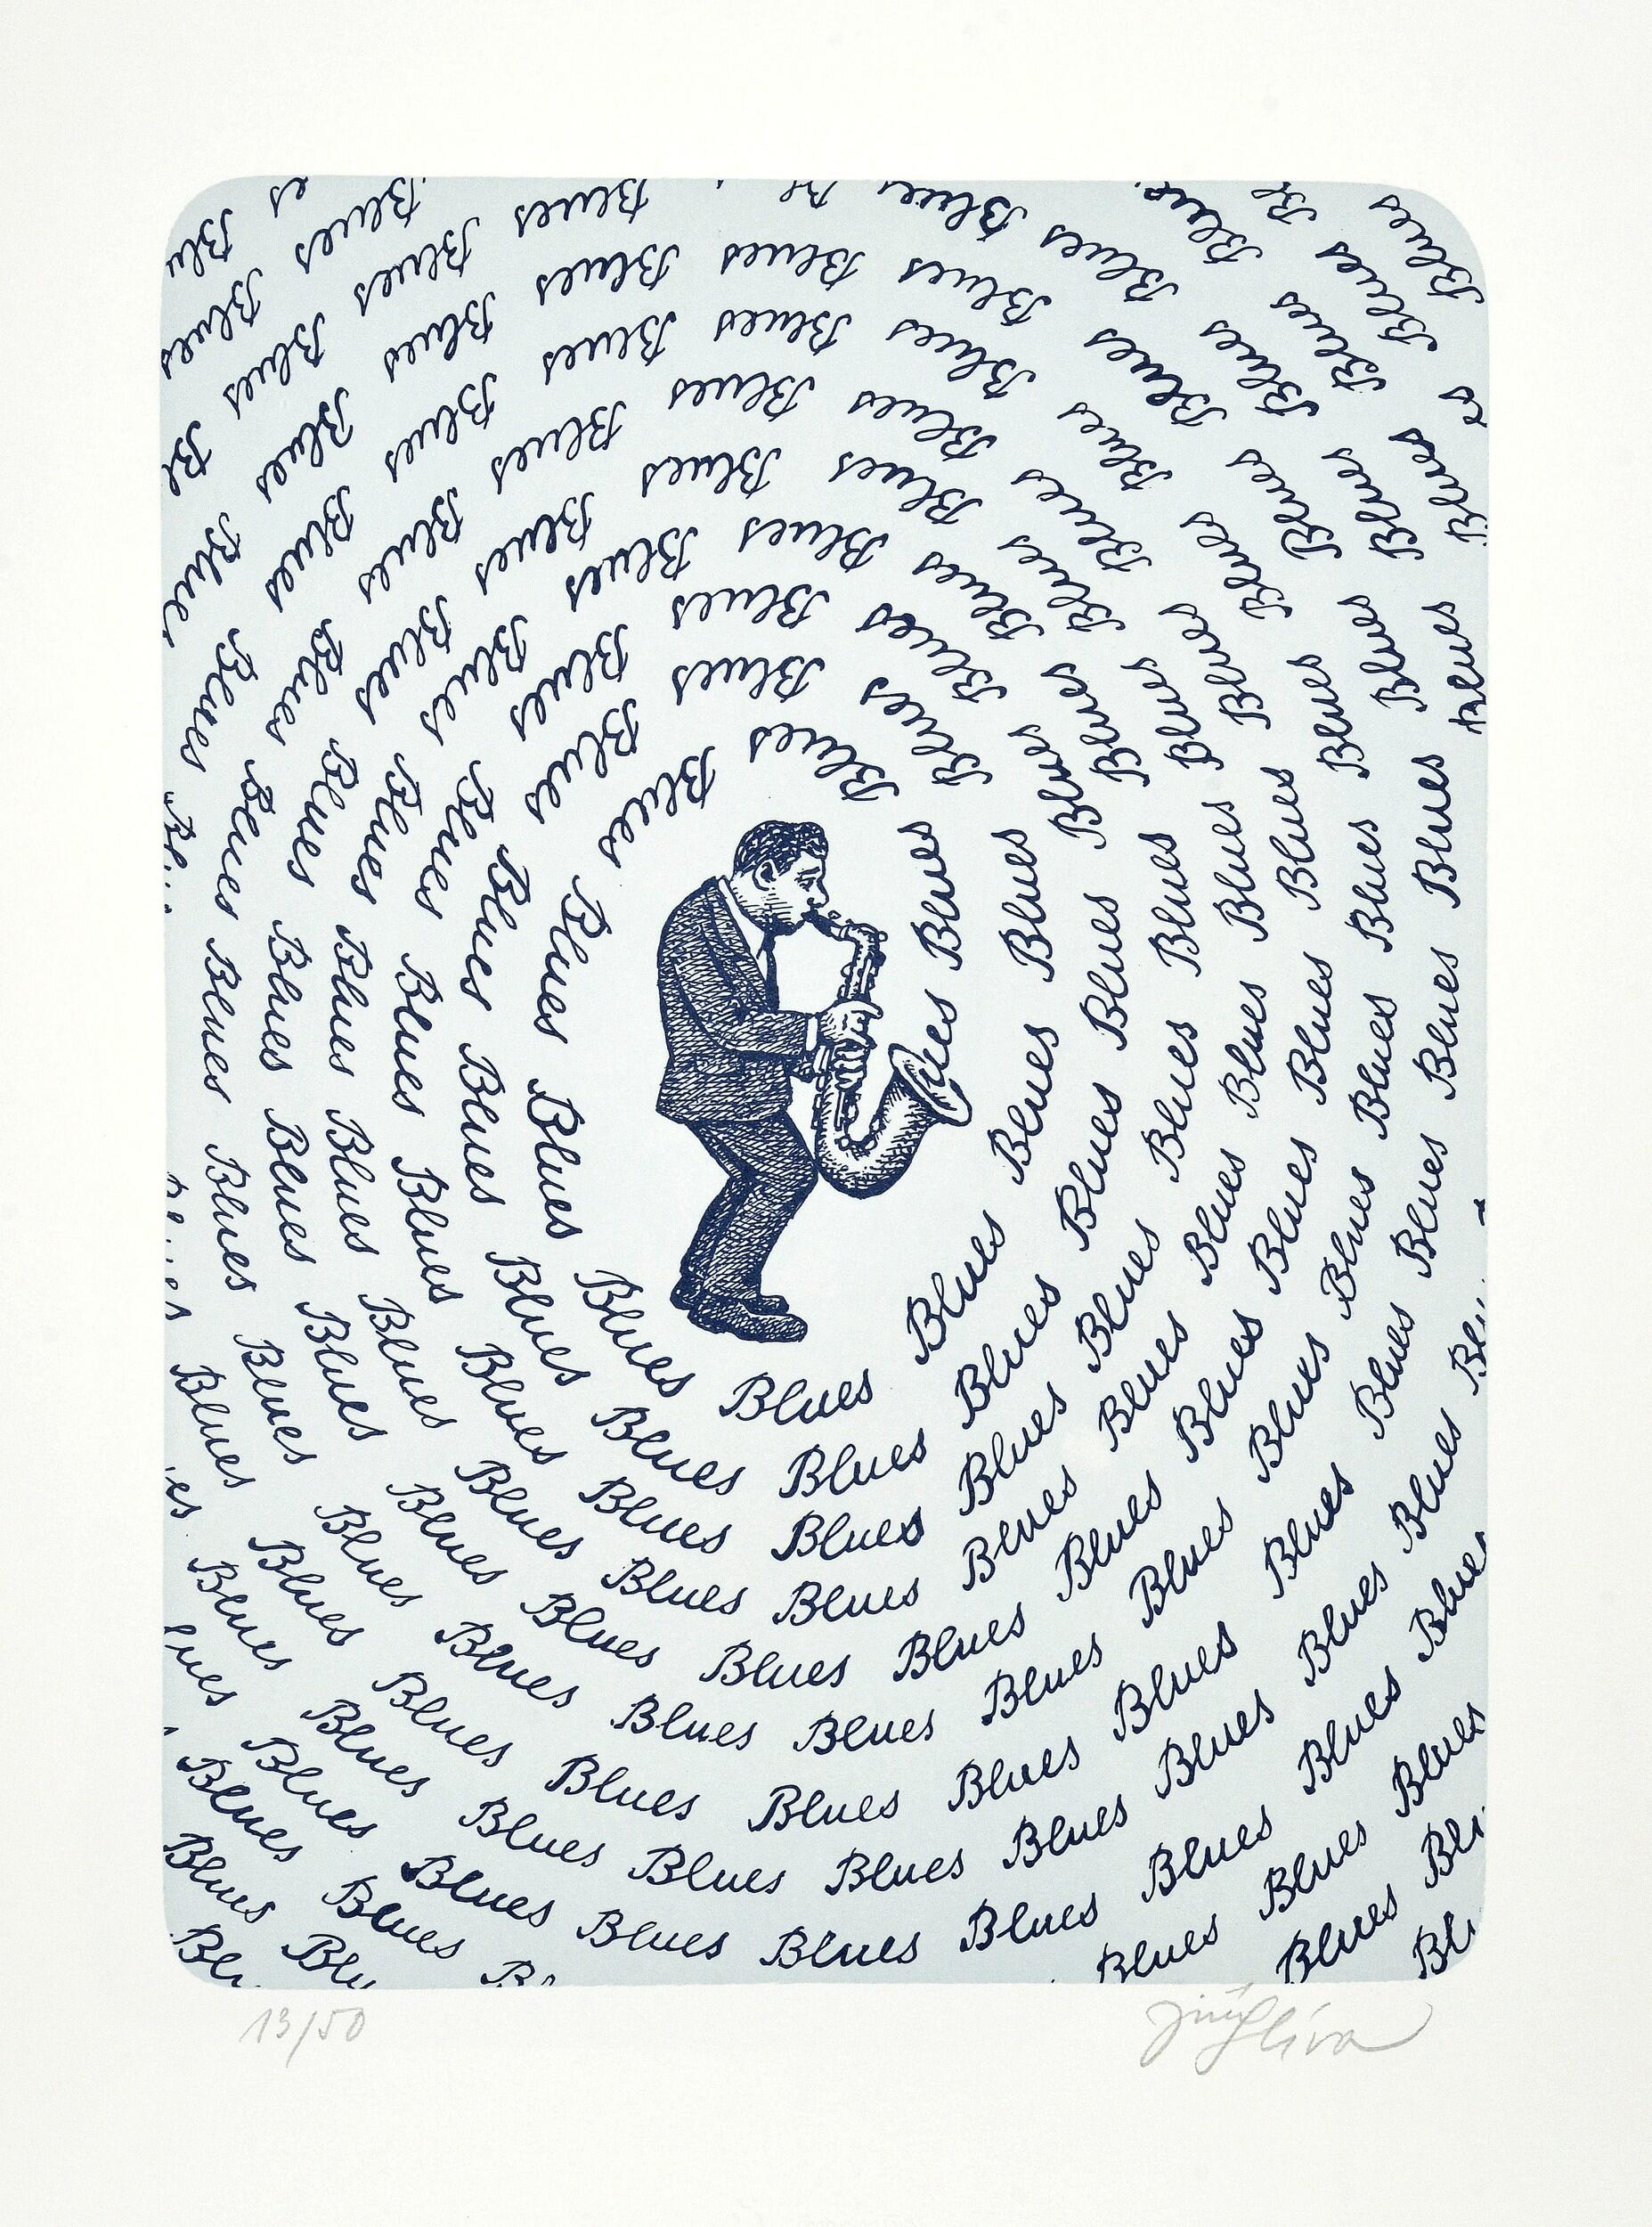 ues Blues Blues Blues Blues Blues Blues Blues Blues Blues
Blues Blues Blues Blues Blues Blues Blues Blues Blues Blues Blues Blues Blues Blues
Blues Blues Blues Blues Blues Blues Blues Blues Blues Blues Blues Blues Blues Blues Blues Blues Blues
Blues Blues Blues Blues Blues Blues Blues Blues Blues Blues Blues Blues Blues Blues Blues Blues Blues Blues Blues Blues
Blues Blues Blues Blues Blues Blues Blues Blues Blues Blues Blues Blues Blues Blues Blues Blues Blues Blues Blues Blues Blues Blues
Blues Blues Blues Blues Blues Blues Blues Blues Blues Blues Blues Blues Blues Blues Blues Blues Blues Blues Blues Blues Blues Blues Blues Blues
13/50
Jiří Slíva